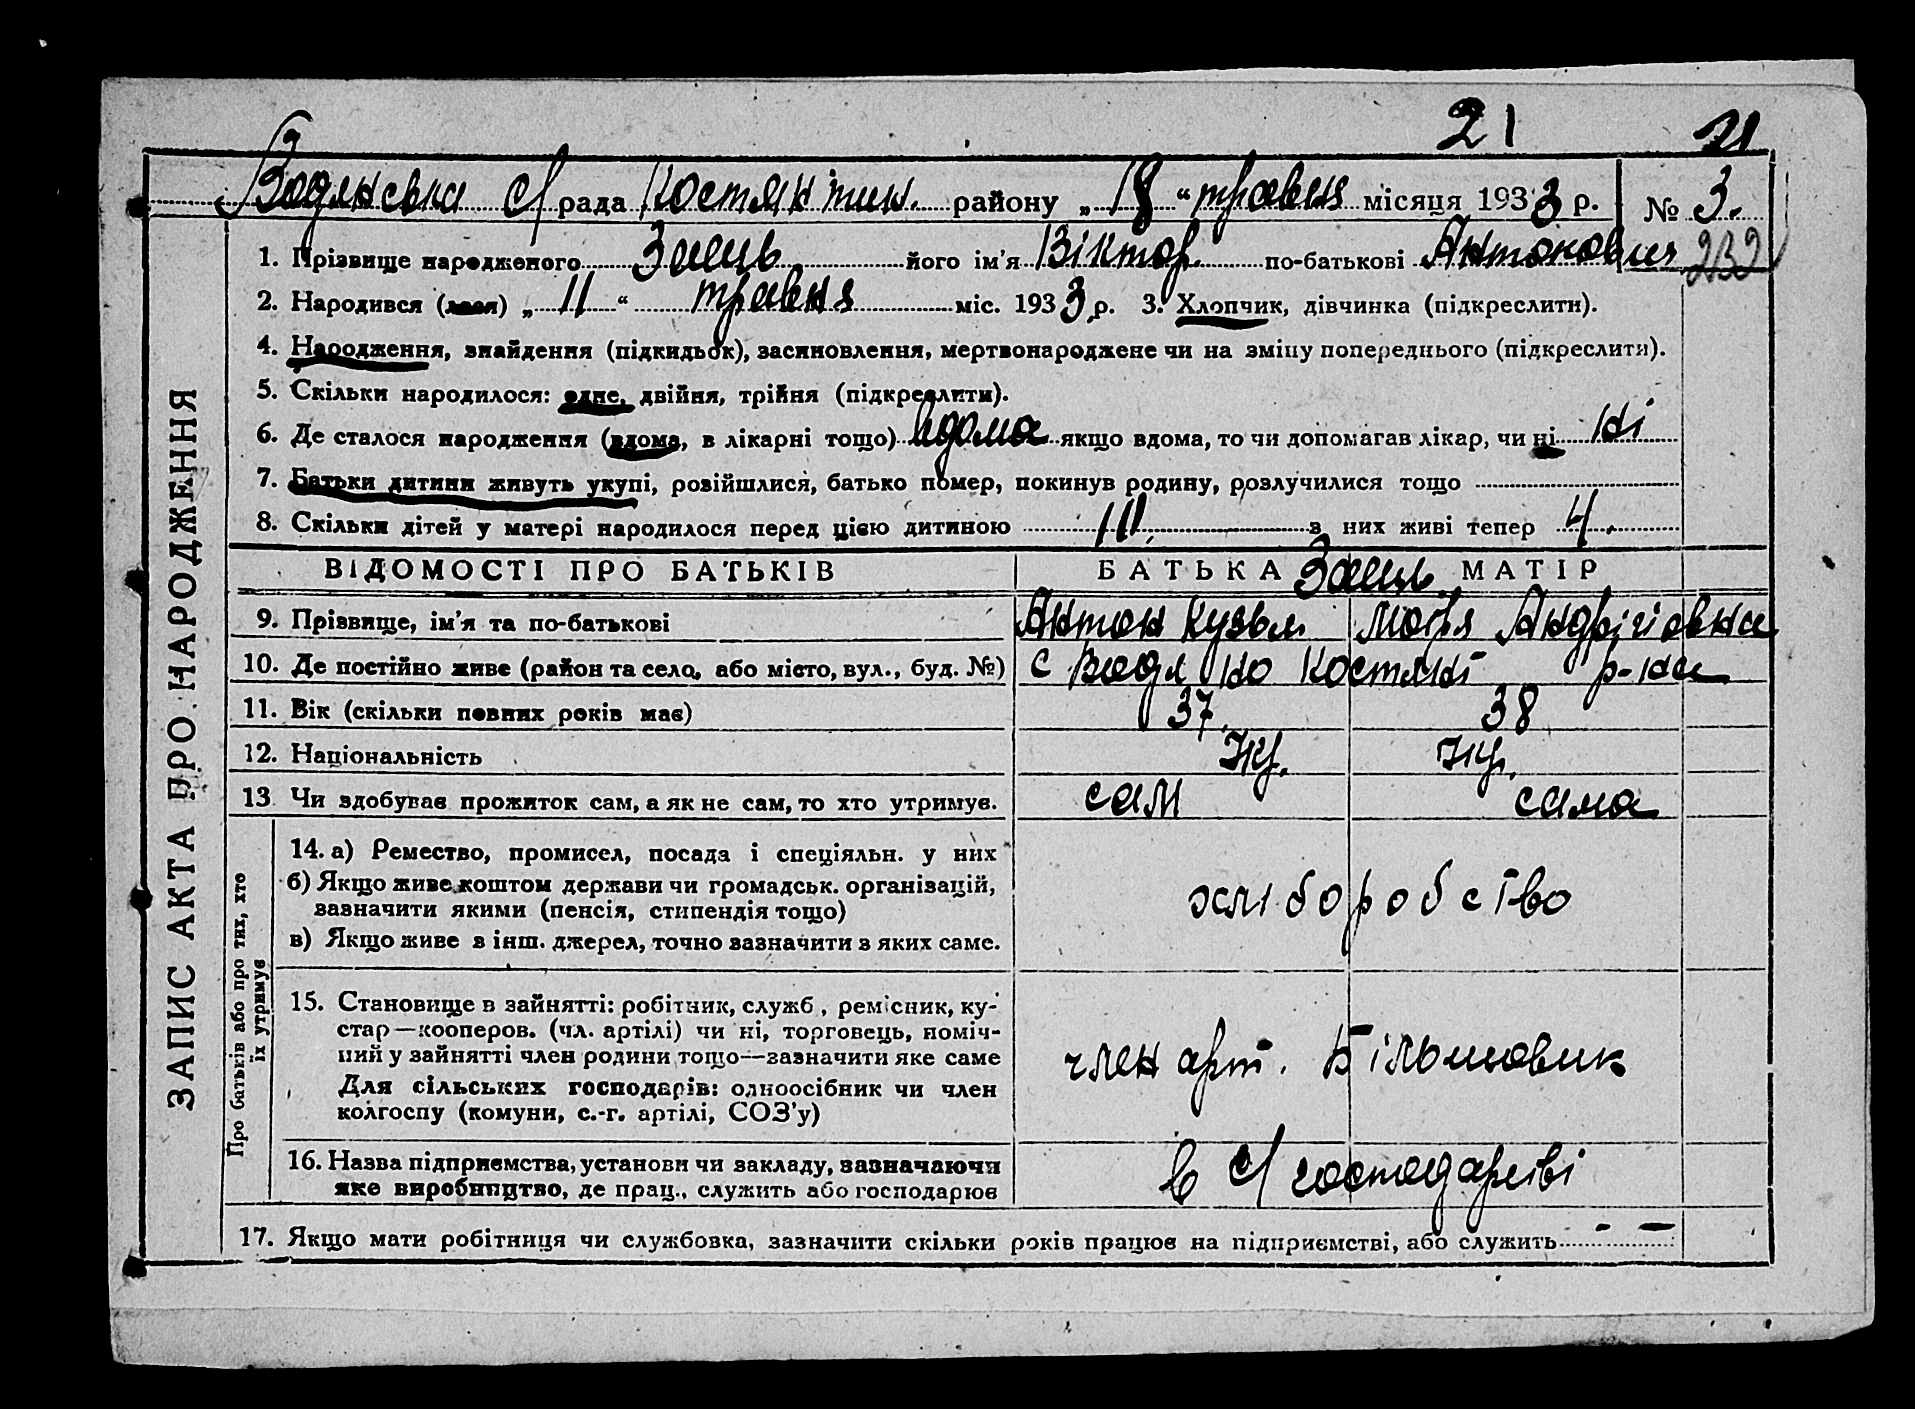 21 21
Водянська с/ рада Костянтин. району „ 18 “ травня місяця 1933 р. № 3.
1. Прізвище народженого Заєць його ім'я Віктор. по-батькові Антонович 239
2. Народився (лася) „ 11 “ травня міс. 1933 р. 3. Хлопчик, дівчинка (підкреслити).
4. Народження, знайдення (підкидьок), засиновлення, мертвонароджене чи на зміну попереднього (підкреслити).
5. Скільки народилося: одне, двійня, трійня (підкреслити).
6. Де сталося народження (вдома, в лікарні тощо) вдома якщо вдома, то чи допомагав лікар, чи ні ні
7. Батьки дитини живуть укупі, розійшлися, батько помер, покинув родину, розлучилися тощо
8. Скільки дітей у матері народилося перед цією дитиною з них живі тепер 4.
ВІДОМОСТІ ПРО БАТЬКІВ БАТЬКА Заєць МАТІР
9. Прізвище, ім'я та по-батькові Антон Кузьм. Мотря Андріївна
10. Де постійно живе (район та село, або місто, вул., буд. №) с Водяно Костянт р-на
11. Вік (скільки повних років має) 37. 38
12. Національність Ук. Ук.
13 Чи здобуває прожиток сам, а як не сам, то хто утримує. сам сама
14. а) Ремество, промисел, посада і спеціяльн. у них
б) Якщо живе коштом держави чи громадськ. організацій,
зазначити якими (пенсія, стипендія тощо)
в) Якщо живе з інш. джерел, точно зазначити з яких саме.
хліборобство
15. Становище в зайнятті: робітник, служб., ремісник, ку-
стар—кооперов. (чл. артілі) чи ні, торговець, поміч-
ний у зайнятті член родини тощо—зазначити яке саме
Для сільських господарів: одноосібник чи член
колгоспу (комуни, с.-г. артілі, СОЗ'у)
член арт. Більшовик
16. Назва підприємства, установи чи закладу, зазначаючи
яке виробництво, де прац., служить або господарює
в с/ господарстві
17. Якщо мати робітниця чи службовка, зазначити скільки років працює на підприємстві, або служить - -
ЗАПИС АКТА ПРО НАРОДЖЕННЯ
Про батьків або про тих, хто
їх утримує